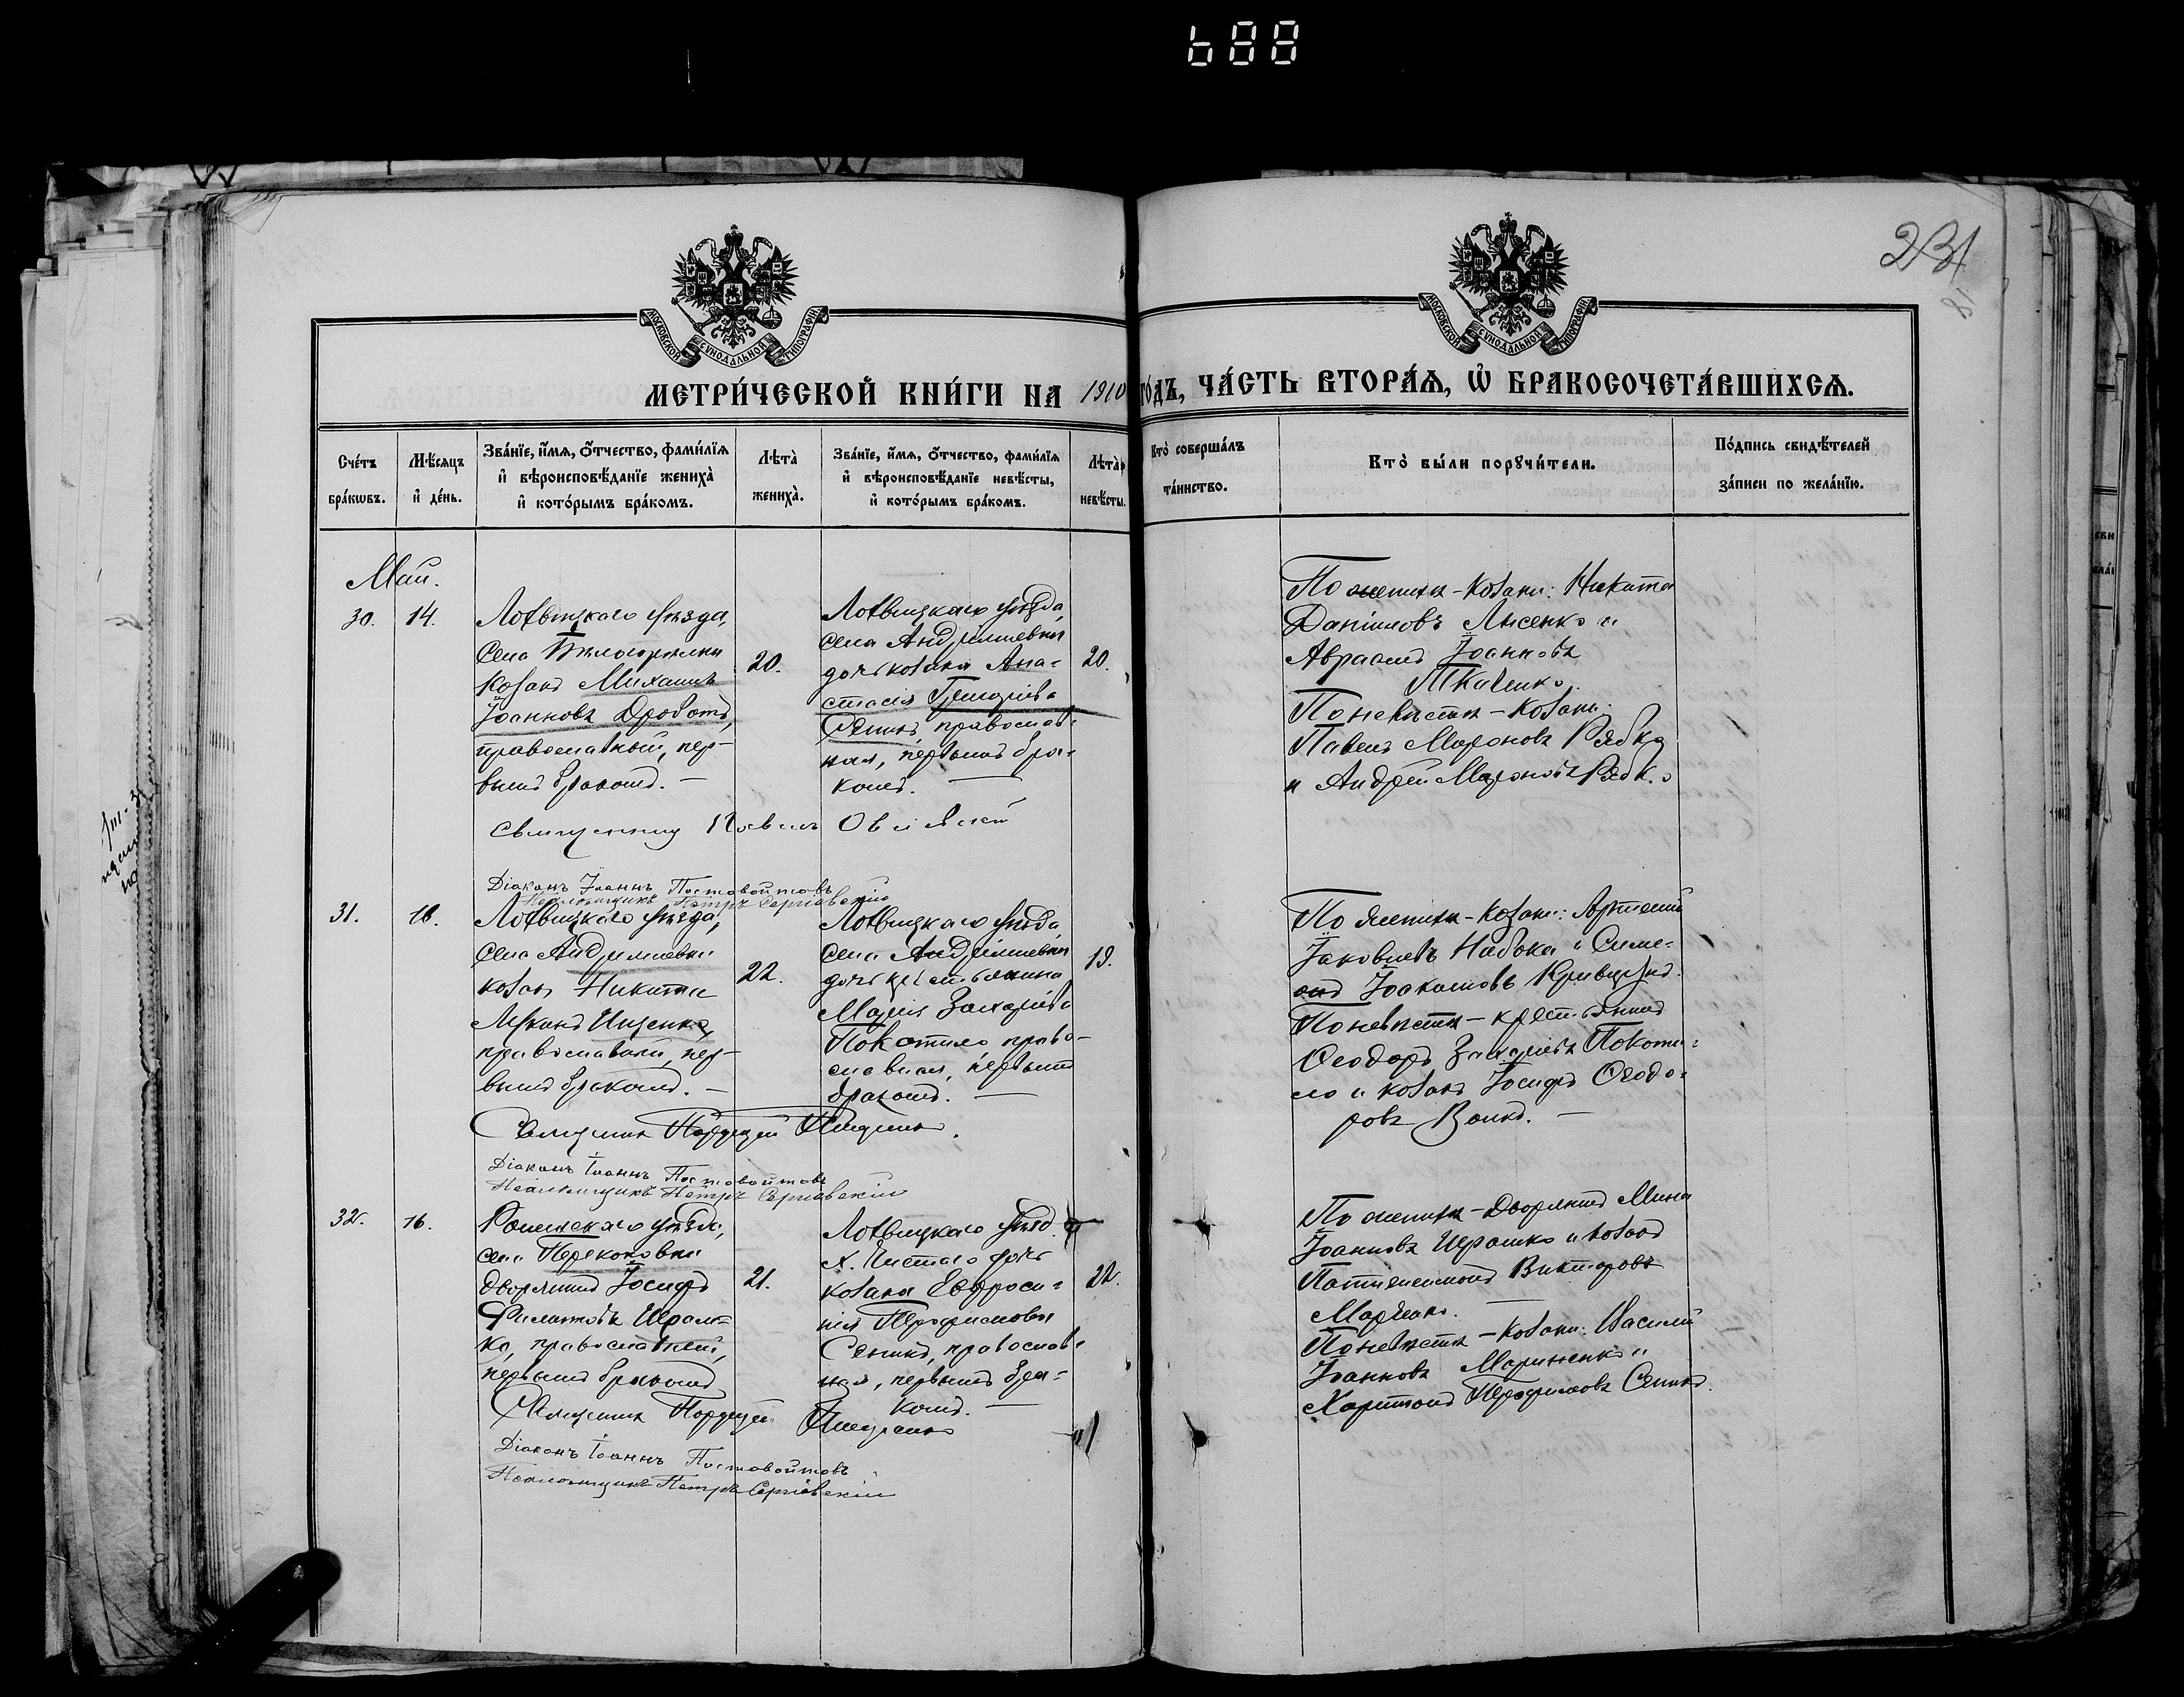 688
231
МОСКОВСКОЙ СѴНОДАЛЬНОЙ ТИПОГРАФІИ
МОСКОВСКОЙ СѴНОДАЛЬНОЙ ТИПОГРАФІИ
МЕТРИ́ЧЕСКОЙ КНИ́ГИ НА 1910 ГО́ДЪ, ЧА́СТЬ ВТОРА́Ѧ, Ѡ БРАКОСОЧЕТА́ВШИХСѦ.
Сче́тъ бра́кѡвъ.
Мѣ́сяцъ и де́нь.
Зва́нїе, и́мѧ, о́тчество, фами́лїѧ
и вѣроисповѣ́данїе жениха̀
и кото́рымъ бра́комъ.
Лѣта̀ жениха̀.
Зва́нїе, и́мѧ, о́тчество, фами́лїѧ
и вѣроисповѣ́данїе невѣ́сты,
и кото́рымъ бра́комъ.
Лѣта̀ невѣ́сты.
Кто̀ соверша́лъ
та́инство.
Кто̀ бы́ли порꙋчи́тели.
По́дпись свидѣ́телей
за́писи по жела́нїю.
Май.
30.
14.
Лохвицкаго уѣзда,
села Бѣлогорѣлки
козакъ Михаилъ
Іоанновъ Дроботъ,
православный, пер-
вымъ бракомъ. —
20.
Лохвицкаго уѣзда
села Андріяшевки
дочь козака Ана-
стасія Григоріева
Сѣникъ, православ-
ная, первымъ бра-
комъ. —
20.
По женихѣ - козаки: Никита
Даніиловъ Лысенко и
Авраамъ Іоанновъ
Ткаченко.
По невѣстѣ - козаки:
Павелъ Мароновъ Рябко
и Андрей Мароновъ Рябко
Священникъ Павелъ
Діаконъ Іоаннъ Постовойтовъ
Псаломщикъ Петръ Сергіевскій
31.
16.
Лохвицкаго уѣзда,
села Андріяшевки
козакъ Никита
Ищенко,
православный, пер-
вымъ бракомъ. —
22.
Лохвицкаго уѣзда
села Андріяшевки
дочь крестьянина
Марія Захаріева
Покотило, право-
славная, первымъ
бракомъ. —
19.
По женихѣ - козаки: Артемій
Іаковлевъ Набока и Симе-
онъ Іоакимовъ
По невѣстѣ - крестьянинъ
Ѳеодоръ Захаріевъ Покоти-
ло и козакъ Іосифъ Ѳеодо-
ровъ
Священникъ
Діаконъ Іоаннъ Постовойтовъ
Псаломщикъ Петръ Сергіевскій
32.
16.
Роменскаго уѣзда,
села Перекоповки
дворянинъ Іосифъ
Филипповъ
православный,
первымъ бракомъ
21.
Лохвицкаго уѣзд.
х. дочь
козака Евфроси-
нія Трофимова
Сѣникъ, православ-
ная, первымъ бра-
комъ. —
22.
По женихѣ - Дворянинъ Мина
Іоанновъ и козакъ
Пантелеимонъ Викторовъ
По невѣстѣ - козаки: Василій
Іоанновъ Мариненко и
Харитонъ Трофимовъ Сѣникъ.
Священникъ
Діаконъ Іоаннъ Постовойтовъ
Псаломщикъ Петръ Сергіевскій